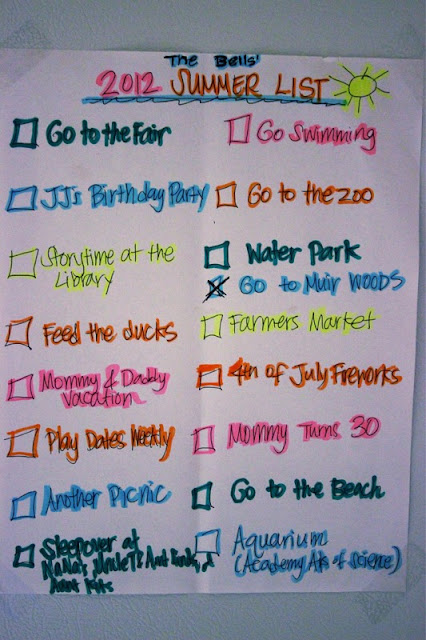 The Bells'
2012 SUMMER LIST
Go to the Fair
JJ's Birthday Party
Storytime at the
Library
Feed the ducks
Mommy & Daddy
Vacation
Play Dates Weekly
Another Picnic
Sleepover at
Aunt
Go Swimming
Go to the zoo
Water Park
Go to Muir WOODS
Farmers Market
4th of July Fireworks
Mommy Turns 30
Go to the Beach
Aquarium
(Academy Arts of Science)